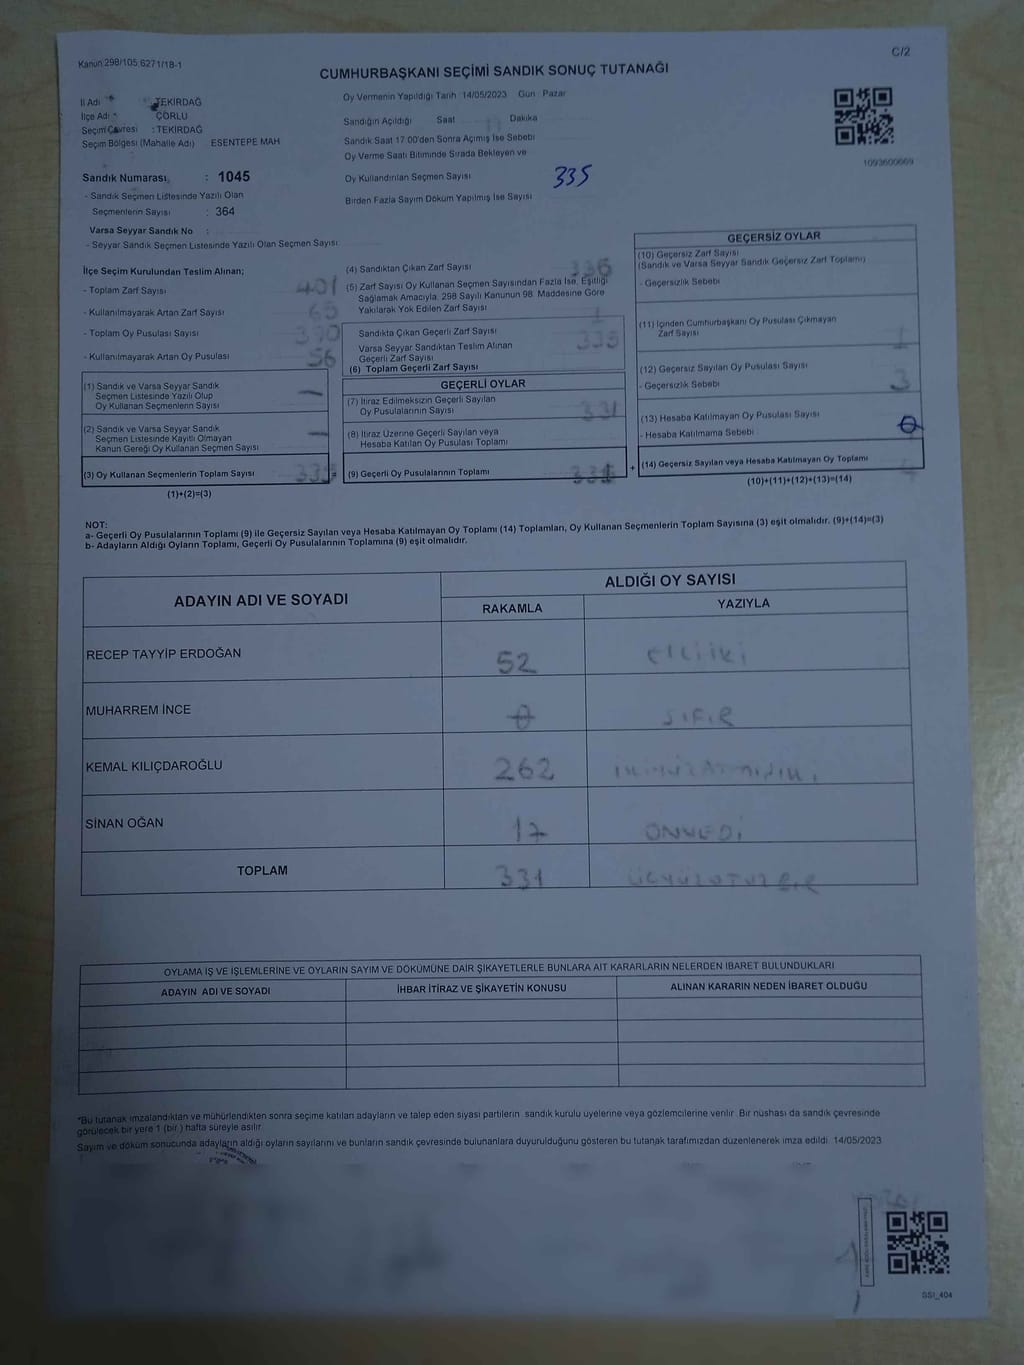 Kanun 298/105 6271/18-1
C/2
CUMHURBAŞKANI SEÇİMİ SANDIK SONUÇ TUTANAĞI
İl Adı : TEKİRDAĞ
İlçe Adı : ÇORLU
Seçim Çevresi : TEKİRDAĞ
Seçim Bölgesi (Mahalle Adı) ESENTEPE MAH
Sandık Numarası : 1045
- Sandık Seçmen Listesinde Yazılı Olan
Seçmenlerin Sayısı : 364
Varsa Seyyar Sandık No :
- Seyyar Sandık Seçmen Listesinde Yazılı Olan Seçmen Sayısı
Oy Vermenin Yapıldığı Tarih 14/05/2023 Gün : Pazar
Sandığın Açıldığı Saat Dakika
Sandık Saat 17.00'den Sonra Açımış İse Sebebi
Oy Verme Saati Bitiminde Sırada Bekleyen ve
Oy Kullandırılan Seçmen Sayısı 335
Birden Fazla Sayım Döküm Yapılmış İse Sayısı
1093600669
İlçe Seçim Kurulundan Teslim Alınan;
- Toplam Zarf Sayısı 401
- Kullanılmayarak Artan Zarf Sayısı 65
- Toplam Oy Pusulası Sayısı 390
- Kullanılmayarak Artan Oy Pusulası 56
(1) Sandık ve Varsa Seyyar Sandık
Seçmen Listesinde Yazılı Olup
Oy Kullanan Seçmenlerin Sayısı —
(2) Sandık ve Varsa Seyyar Sandık
Seçmen Listesinde Kayıtlı Olmayan
Kanun Gereği Oy Kullanan Seçmen Sayısı —
(3) Oy Kullanan Seçmenlerin Toplam Sayısı 335 =
(1)+(2)=(3)
(4) Sandıktan Çıkan Zarf Sayısı 336
(5) Zarf Sayısı Oy Kullanan Seçmen Sayısından Fazla İse, Eşitliği
Sağlamak Amacıyla, 298 Sayılı Kanunun 98. Maddesine Göre
Yakılarak Yok Edilen Zarf Sayısı 1
Sandıkta Çıkan Geçerli Zarf Sayısı
335
Varsa Seyyar Sandıktan Teslim Alınan
Geçerli Zarf Sayısı
(6) Toplam Geçerli Zarf Sayısı
GEÇERLİ OYLAR
(7) İtiraz Edilmeksizin Geçerli Sayılan
Oy Pusulalarının Sayısı 331
(8) İtiraz Üzerine Geçerli Sayılan veya
Hesaba Katılan Oy Pusulası Toplamı
(9) Geçerli Oy Pusulalarının Toplamı 331 +
GEÇERSİZ OYLAR
(10) Geçersiz Zarf Sayısı
(Sandık ve Varsa Seyyar Sandık Geçersiz Zarf Toplamı)
- Geçersizlik Sebebi
(11) İçinden Cumhurbaşkanı Oy Pusulası Çıkmayan
Zarf Sayısı 1
(12) Geçersiz Sayılan Oy Pusulası Sayısı
- Geçersizlik Sebebi 3
(13) Hesaba Katılmayan Oy Pusulası Sayısı
- Hesaba Katılmama Sebebi 0
(14) Geçersiz Sayılan veya Hesaba Katılmayan Oy Toplamı 4
(10)+(11)+(12)+(13)=(14)
NOT:
a- Geçerli Oy Pusulalarının Toplamı (9) ile Geçersiz Sayılan veya Hesaba Katılmayan Oy Toplamı (14) Toplamları, Oy Kullanan Seçmenlerin Toplam Sayısına (3) eşit olmalıdır. (9)+(14)=(3)
b- Adayların Aldığı Oyların Toplamı, Geçerli Oy Pusulalarının Toplamına (9) eşit olmalıdır.
ADAYIN ADI VE SOYADI
ALDIĞI OY SAYISI
RAKAMLA YAZIYLA
RECEP TAYYİP ERDOĞAN 52 elliiki
MUHARREM İNCE 0 SIFIR
KEMAL KILIÇDAROĞLU 262
SİNAN OĞAN 17 ONYEDİ
TOPLAM 331 ÜÇYÜZOTUZBİR
OYLAMA İŞ VE İŞLEMLERİNE VE OYLARIN SAYIM VE DÖKÜMÜNE DAİR ŞİKAYETLERLE BUNLARA AİT KARARLARIN NELERDEN İBARET BULUNDUKLARI
ADAYIN ADI VE SOYADI İHBAR İTİRAZ VE ŞİKAYETİN KONUSU ALINAN KARARIN NEDEN İBARET OLDUĞU
*Bu tutanak imzalandıktan ve mühürlendikten sonra seçime katılan adayların ve talep eden siyasi partilerin sandık kurulu üyelerine veya gözlemcilerine verilir. Bir nüshası da sandık çevresinde
görülecek bir yere 1 (bir) hafta süreyle asılır.
Sayım ve döküm sonucunda adayların aldığı oyların sayılarını ve bunların sandık çevresinde bulunanlara duyurulduğunu gösteren bu tutanak tarafımızdan düzenlenerek imza edildi. 14/05/2023
SSI_404